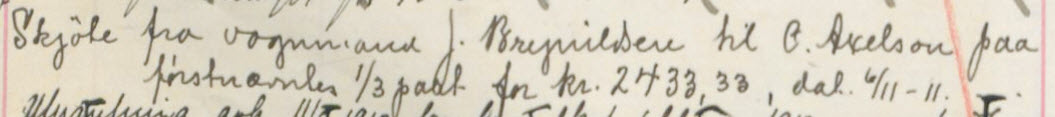 Skjöte fra vognmand J. Brynildsen til C. Axelson paa
förstnævntes 1/3 part for kr. 2433,33, dat. 6/11-11.